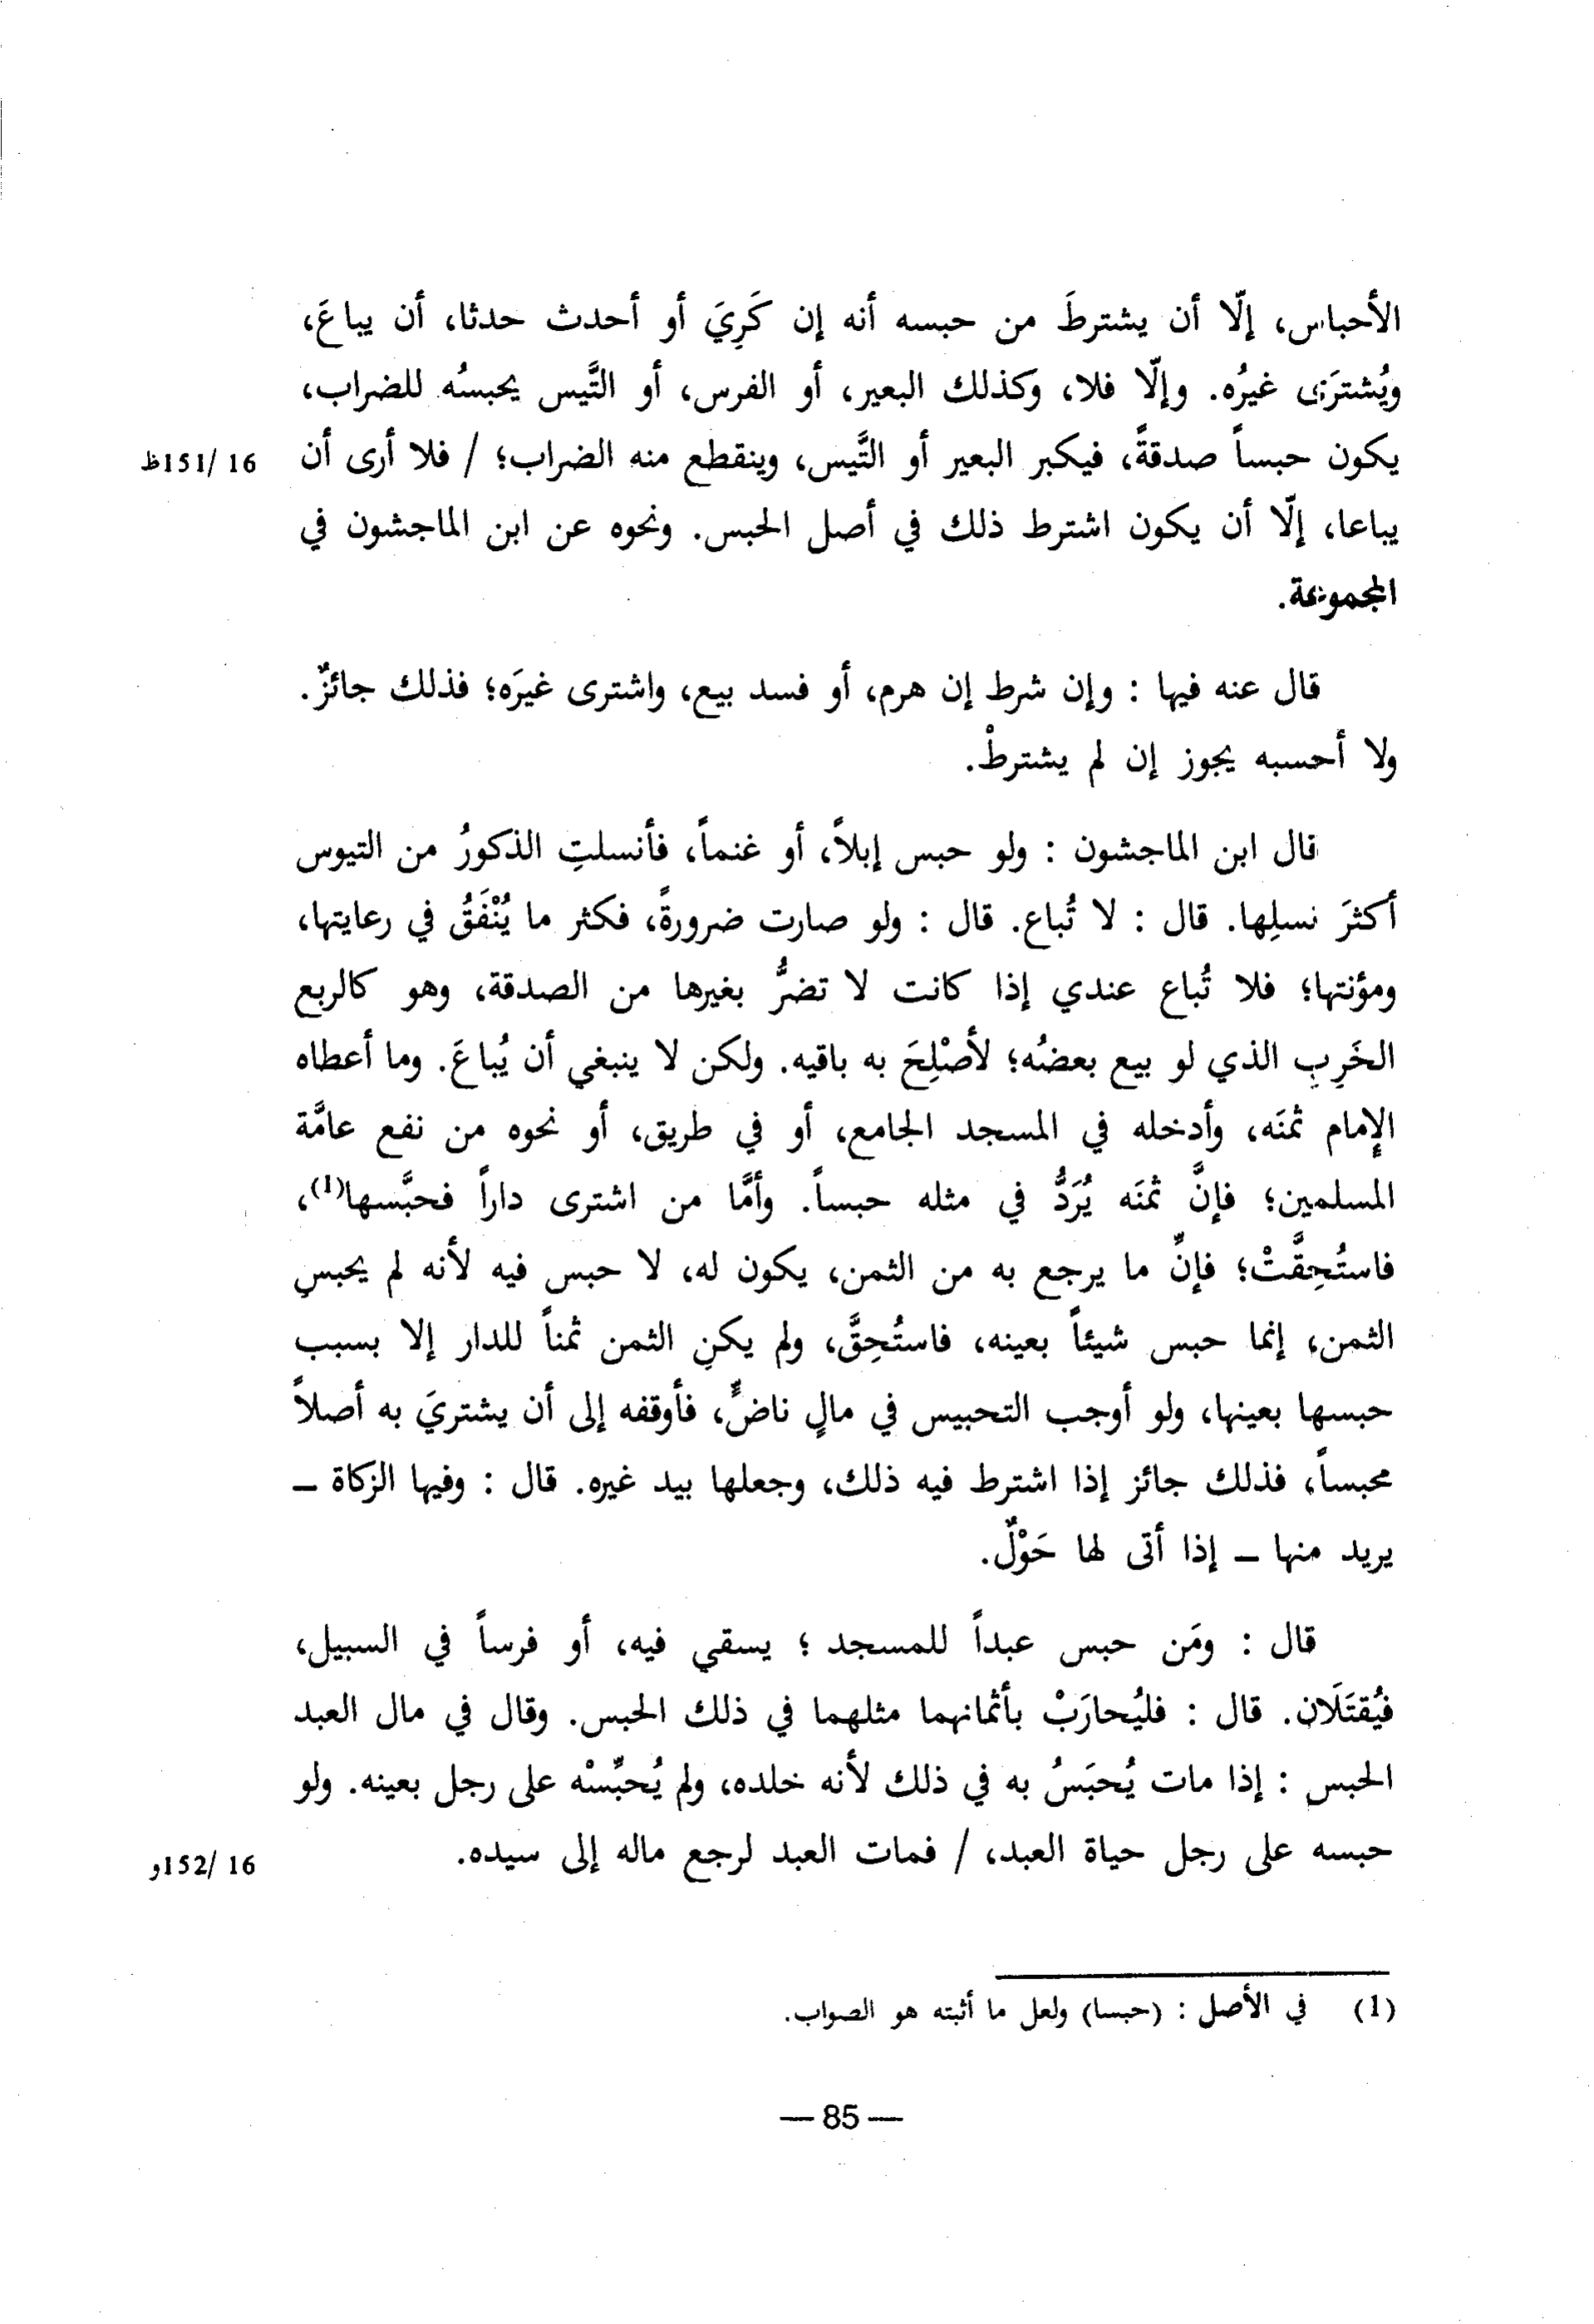 الأحباس، إلّا أن يشترطَ من حبسه أنه إن كَرِيَ أو أحدث حدثا، أن يباعَ،
ويُشترَى غيرُه. وإلّا فلا، وكذلك البعير، أو الفرس، أو التَّيس يحبسُه للضراب،
يكون حبساً صدقةً، فيكبر البعير أو التَّيس، وينقطع منه الضراب؛ / فلا أرى أن
16 /151ظ
يباعا، إلّا أن يكون اشترط ذلك في أصل الحبس. ونحوه عن ابن الماجشون في
المجموعة.
قال عنه فيها : وإن شرط إن هرم، أو فسد بيع، واشترى غيرَه؛ فذلك جائزٌ.
ولا أحسبه يجوز إن لم يشترطْ.
قال ابن الماجشون : ولو حبس إبلاً، أو غنماً، فأنسلتِ الذكورُ من التيوس
أكثرَ نسلِها. قال : لا تُباع. قال : ولو صارت ضرورةً، فكثر ما يُنْفَقُ في رعايتها،
ومؤنتها؛ فلا تُباع عندي إذا كانت لا تضرُّ بغيرها من الصدقة، وهو كالربع
الخَرِبِ الذي لو بيع بعضُه؛ لأصْلِحَ به باقيه. ولكن لا ينبغي أن يُباعَ. وما أعطاه
الإمام ثمنَه، وأدخله في المسجد الجامع، أو في طريق، أو نحوه من نفع عامَّة
المسلمين؛ فإنَّ ثمنَه يُرَدُّ في مثله حبساً. وأمَّا من اشترى داراً فحبَّسها(1)،
فاستُحِقَّتْ؛ فإنَّ ما يرجع به من الثمن، يكون له، لا حبس فيه لأنه لم يحبسِ
الثمن، إنما حبس شيئاً بعينه، فاستُحِقَّ، ولم يكنِ الثمن ثمناً للدار إلا بسبب
حبسها بعينها، ولو أوجب التحبيس في مالٍ ناضٍّ، فأوقفه إلى أن يشتريَ به أصلاً
محبساً، فذلك جائز إذا اشترط فيه ذلك، وجعلها بيد غيره. قال : وفيها الزكاة –
يريد منها – إذا أتى لها حَوْلٌ.
قال : ومَن حبس عبداً للمسجد ؛ يسقي فيه، أو فرساً في السبيل،
فيُقتَلَان. قال : فليُحارَبْ بأثمانهما مثلهما في ذلك الحبس. وقال في مال العبد
الحبس : إذا مات يُحبَسُ به في ذلك لأنه خلده، ولم يُحبِّسْه على رجل بعينه. ولو
حبسه على رجل حياة العبد، / فمات العبد لرجع ماله إلى سيده.
16 /152و
(1) في الأصل : (حبسا) ولعل ما أثبته هو الصواب.
— 85 —